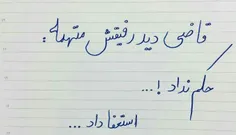 قاضی دید رفیقش متهمه :
حکم نداد !...
استعفا داد ...